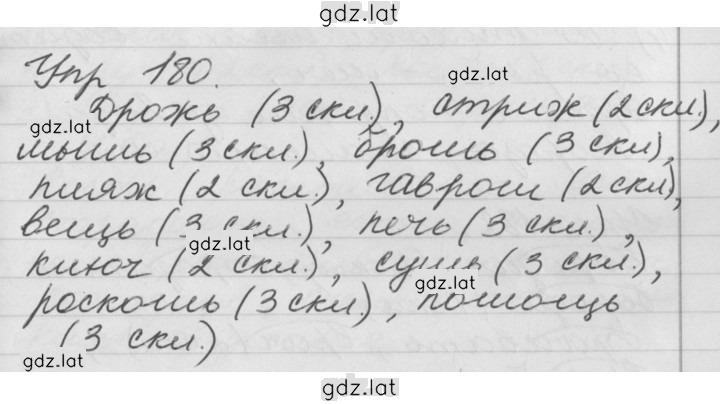 gdz.lat
Упр 180.
gdz.lat
Дрожь (3 скл.), стриж (2 скл.),
gdz.lat
мышь (3 скл.), брошь (3 скл),
пляж (2 скл.), гаврош (2 скл),
вещь (3 скл.), печь (3 скл.),
gdz.lat
ключ (2 скл.), сушь (3 скл.),
gdz.lat
роскошь (3 скл.), помощь
(3 скл.)
gdz.lat
gdz.lat